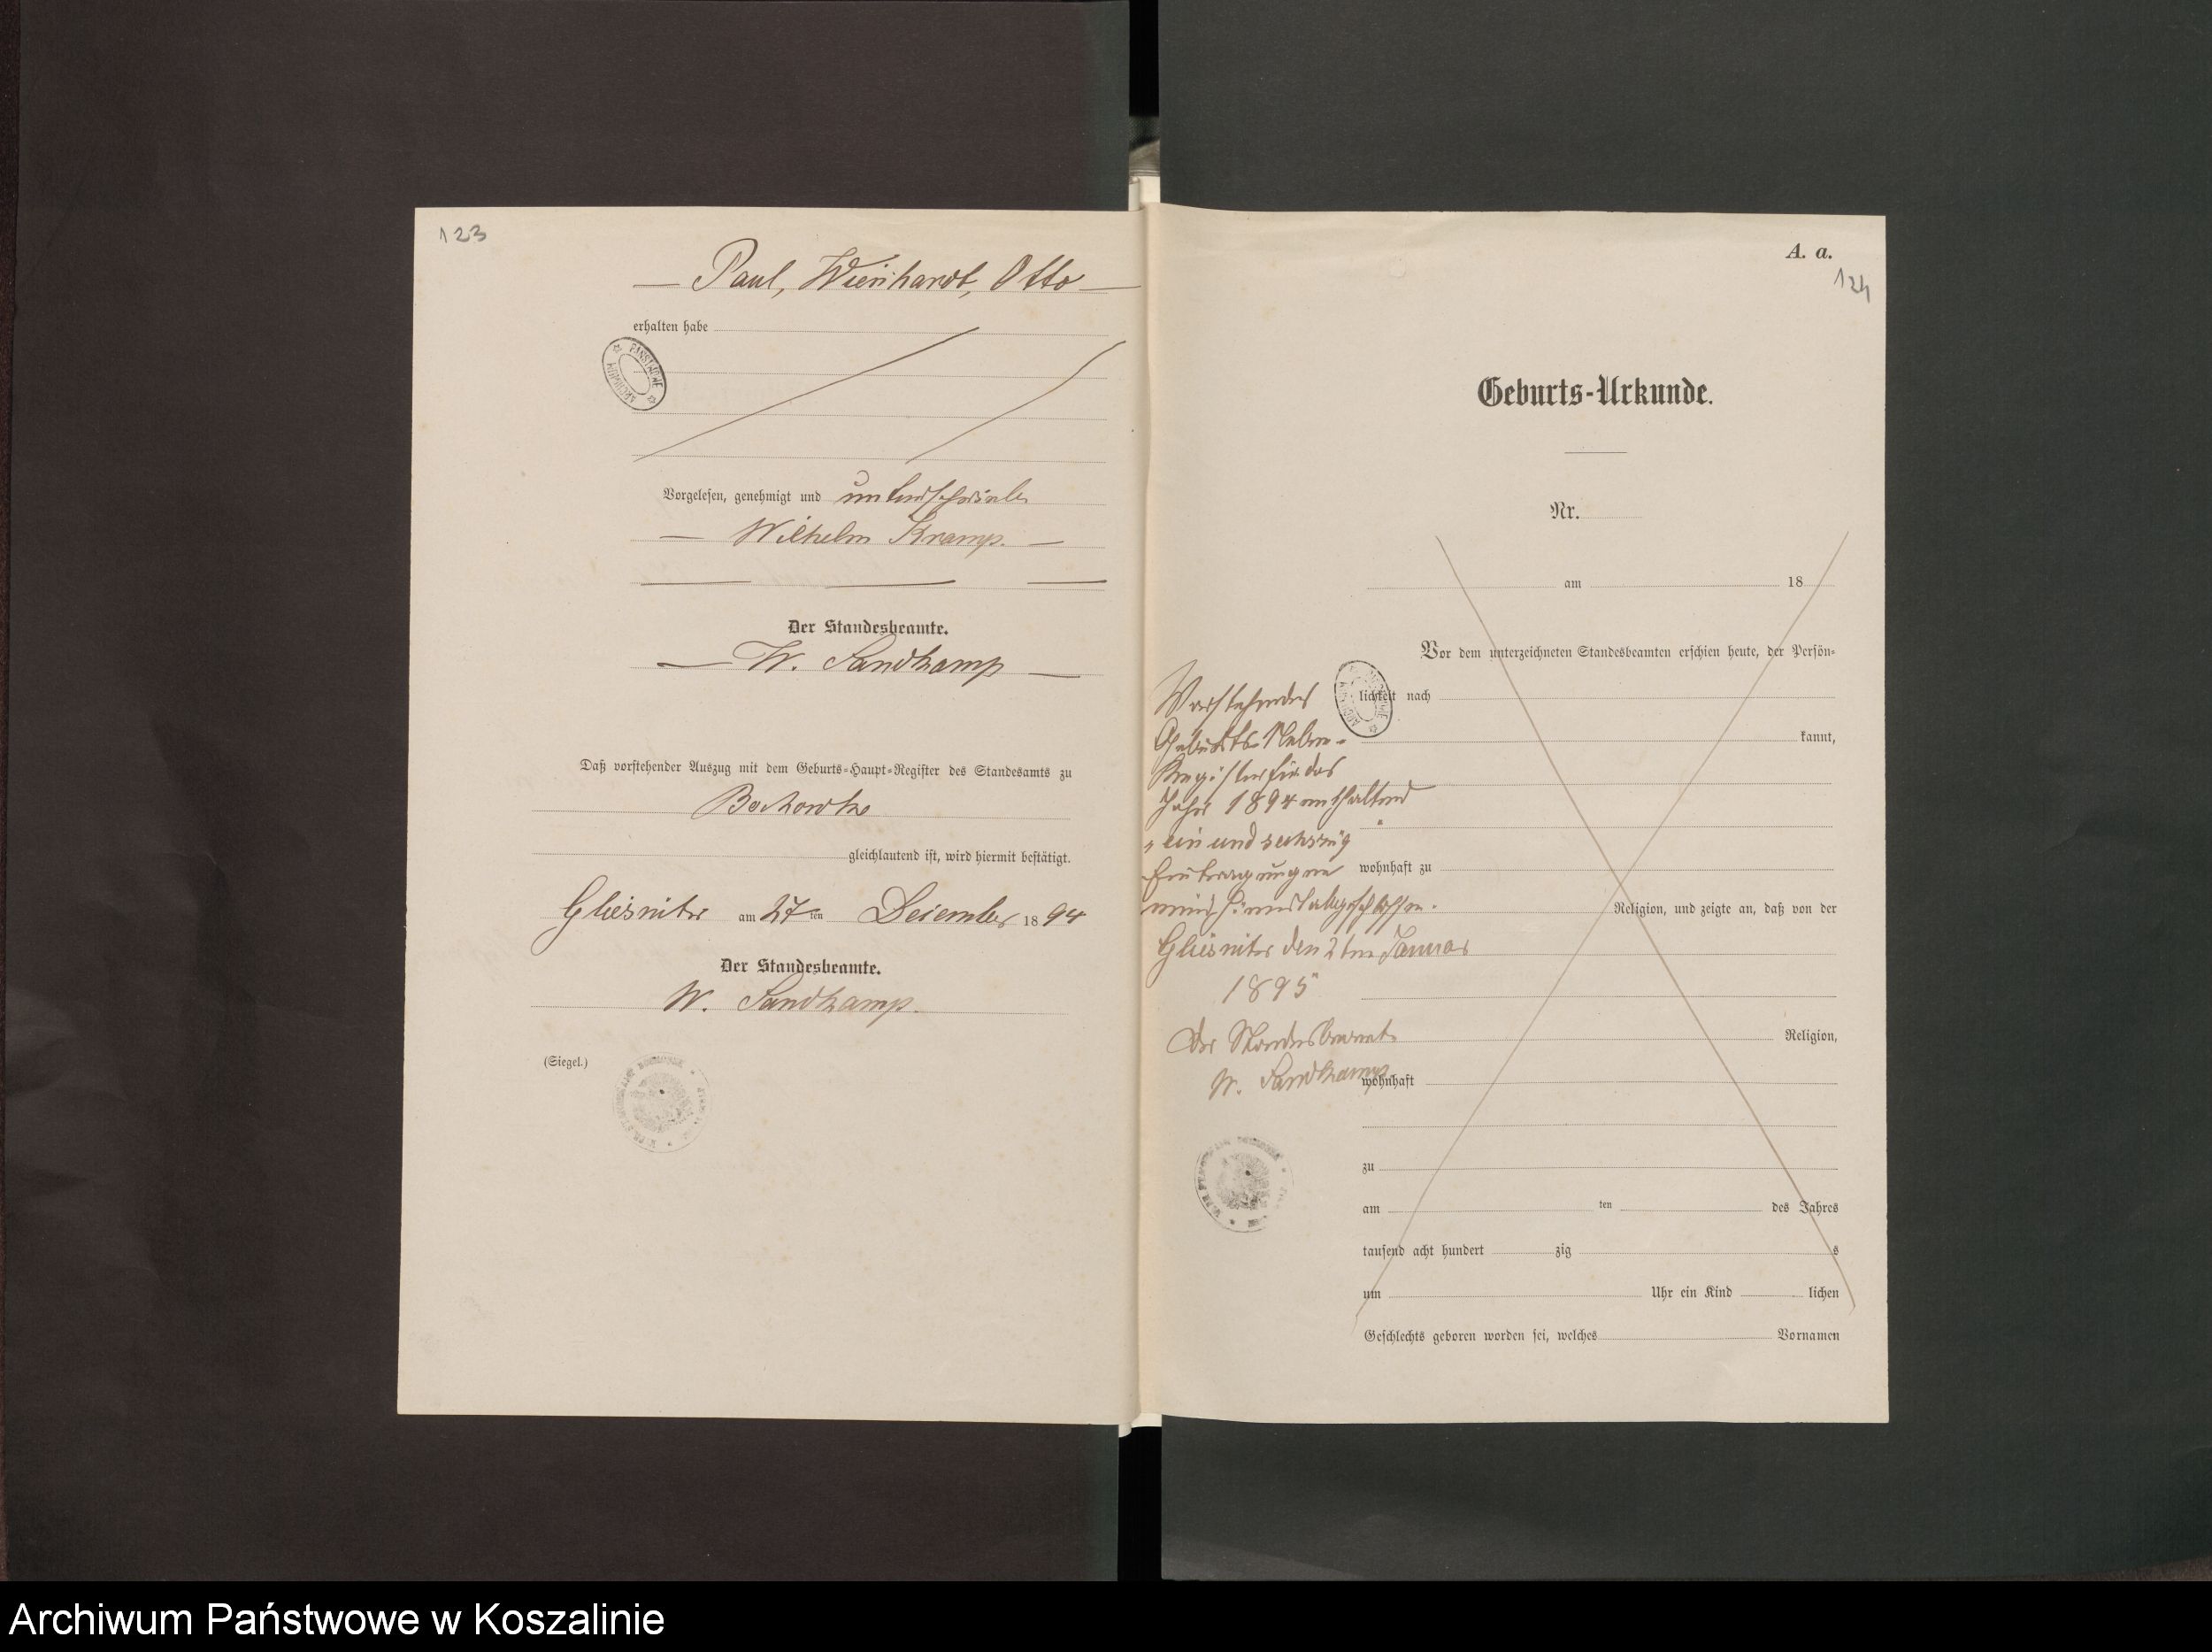 123
Paul, Wienhardt, Otto
erhalten habe
Vorgelesen, genehmigt und unterschrieben
Wilhelm Kramp.
Der Standesbeamte.
W. Sandkamp
Daß vorstehender Auszug mit dem Geburts-Haupt-Register des Standesamts zu
Bochowke
gleichlautend ist, wird hiermit bestätigt.
Gliesnitz am 27ten Dezember 1894
Der Standesbeamte.
W. Sandkamp.
(Siegel.)
A. a.
124
Geburts-Urkunde.
Nr.
am 18
Vor dem unterzeichneten Standesbeamten erschien heute, der Persön-
lichkeit nach
kannt,
wohnhaft zu
Religion, und zeigte an, daß von der
Religion,
wohnhaft
zu
am ten des Jahres
tausend acht hundert zig s
um Uhr ein Kind lichen
Geschlechts geboren worden sei, welches Vornamen
Vorstehendes
Geburts-Neben-
Register für das
Jahr 1894 enthaltend
"ein und sechszig"
Eintragungen
wird hiermit abgeschlossen.
Gliesnitz den 2ten Januar
1895
Der Standesbeamte
W. Sandkamp
ARCHIWUM PAŃSTWOWE
Archiwum Państwowe w Koszalinie